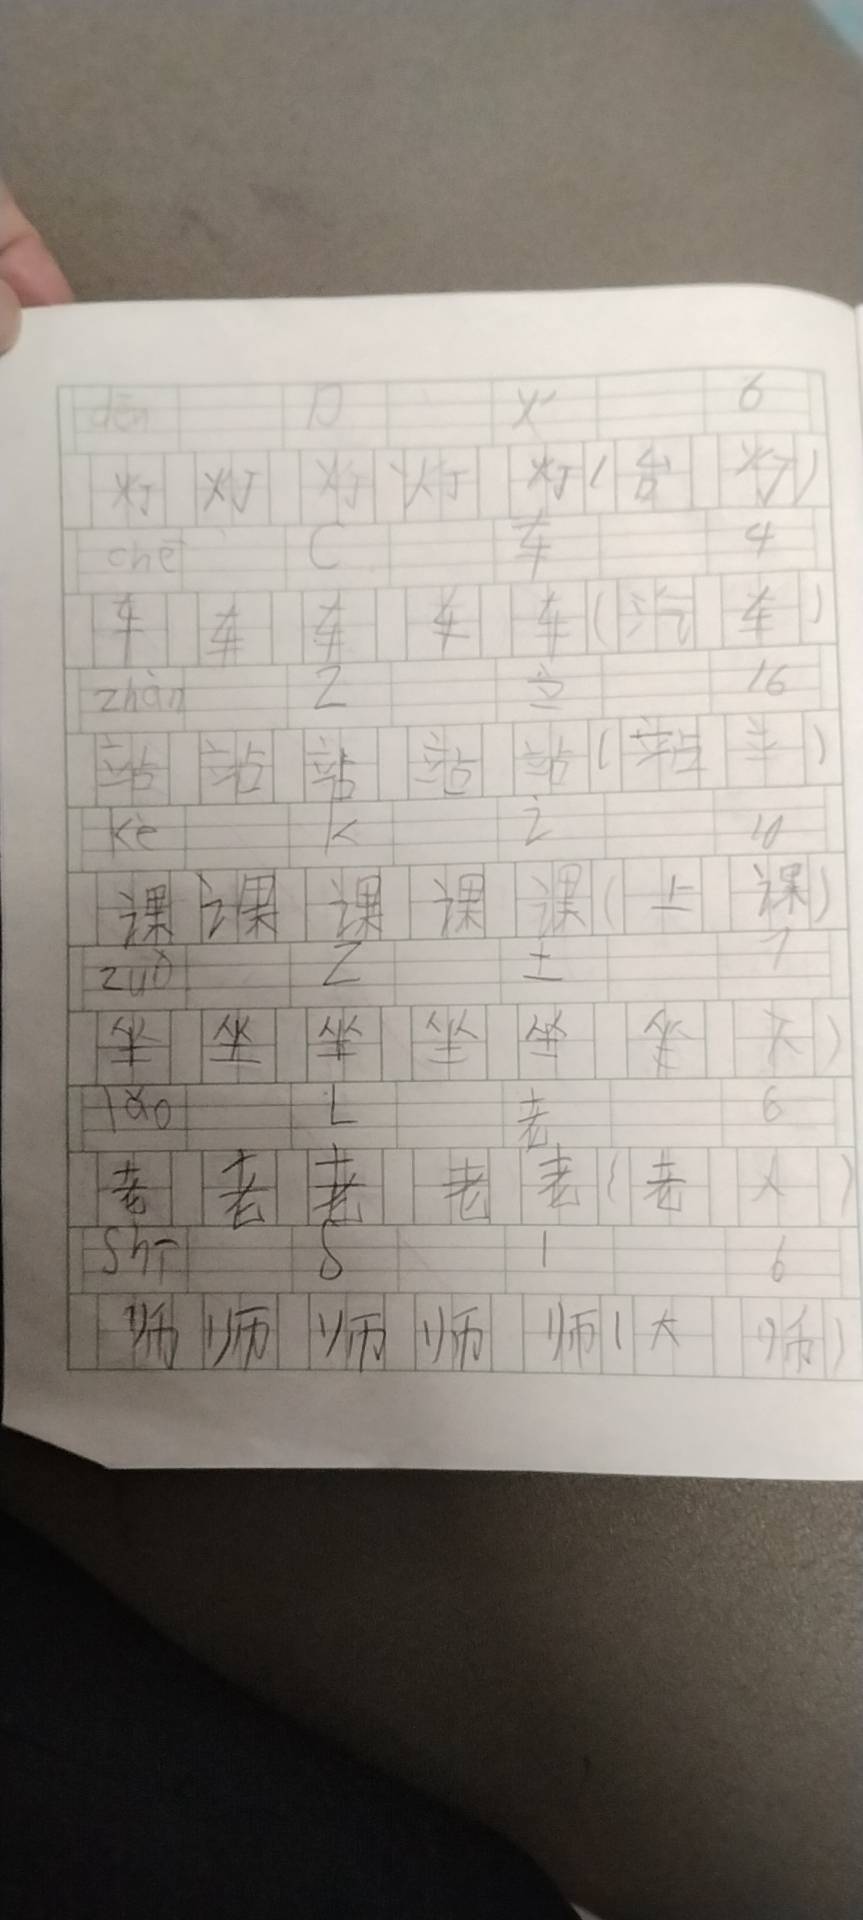 dēn D 火 6
灯 灯 灯 灯 灯 ( 台 灯 )
chē C 车 4
车 车 车 车 车 ( 汽 车 )
zhàn Z 立 16
站 站 站 站 站 ( 站 )
kè K 讠 10
课 课 课 课 课 ( 上 课 )
zuò Z 土 7
坐 坐 坐 坐 坐 坐 )
lǎo L 老 6
老 老 老 老 老 ( 老 人 )
Shī S 丨 6
师 师 师 师 师 ( 大 师 )